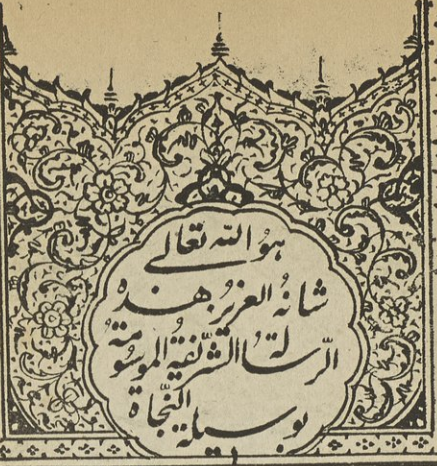 هُو اللّه تعالى
شانهُ العزيزُ هذه
الرّسالةُ الشّريفةُ الموسُومةُ
بوسيلة النّجاة